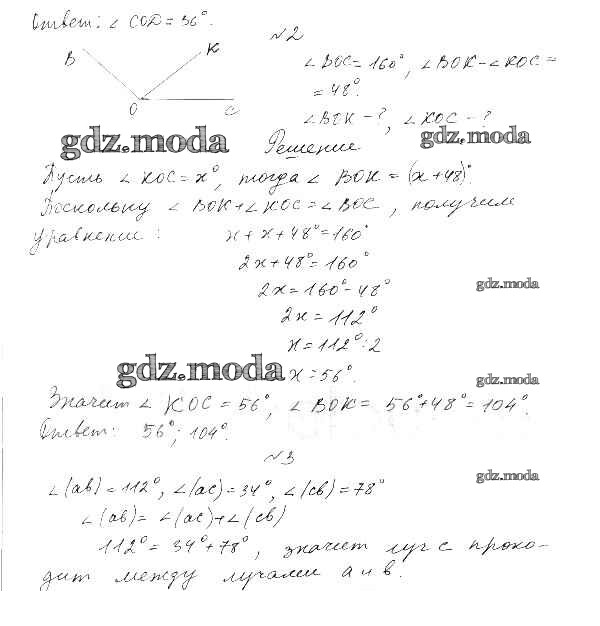 Ответ: ∠ COD = 56°.
№2
B K
O C
∠ BOC = 160°, ∠ BOK - ∠ KOC =
= 48°.
∠ BOK - ?, ∠ KOC - ?
gdz.moda gdz.moda
Решение
Пусть ∠ KOC = x°, тогда ∠ BOK = (x + 48)°.
Поскольку ∠ BOK + ∠ KOC = ∠ BOC, получим
уравнение:
x + x + 48° = 160°
2x + 48° = 160°
2x = 160° - 48°
gdz.moda
2x = 112°
x = 112° : 2
gdz.moda x = 56°.
gdz.moda
Значит ∠ KOC = 56°, ∠ BOK = 56° + 48° = 104°.
Ответ: 56°; 104°.
№3
gdz.moda
∠(ab) = 112°, ∠(ac) = 34°, ∠(cb) = 78°
∠(ab) = ∠(ac) + ∠(cb)
112° = 34° + 78°, значит луч c прохо-
дит между лучами a и b.